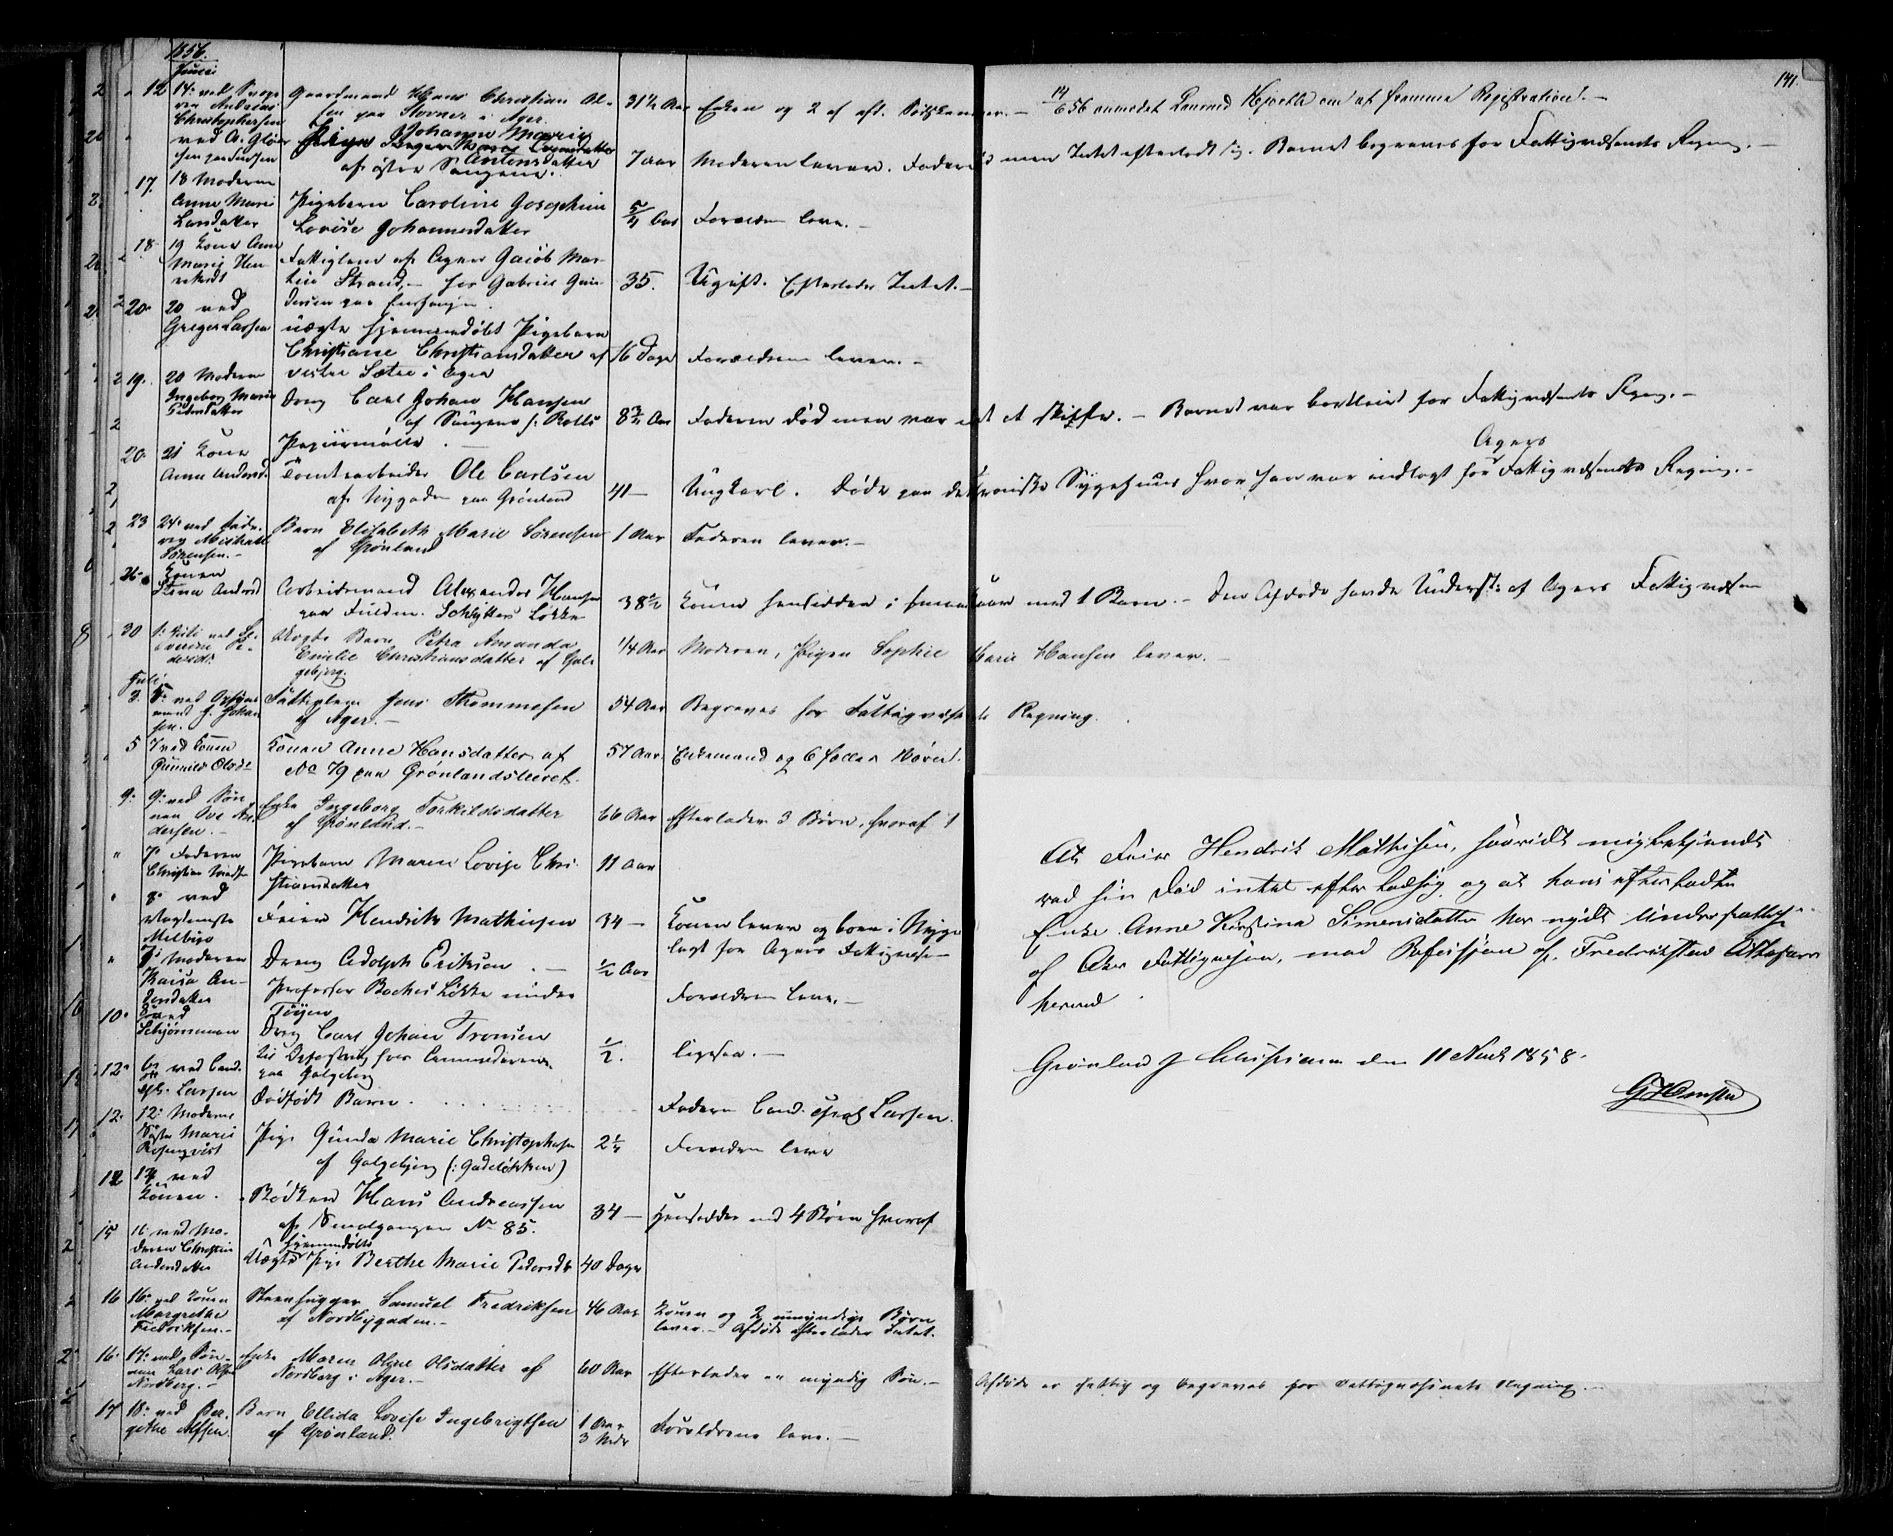 1856.
Junii
141.
12 14. ved Svoge-
ren Andreas
Christophersen
Gaardmand Hans Christian Ol-
sen paa Stovner i Ager.
31½ Aar Enken og 2 af afd.
14/6 56 anmodet Lensmd Hjorth om at fremme Registration. —
Johanne Marie
Antonsdatter
af østre Sangene.
7 aar Moderen lever. Faderen men Intet efterlodt sig. Barnet begraves for Fattigvæsenets Regng. —
17. 18 Moderen
Anne Marie
Larsdatter
Pigebarn Caroline Josephine
Lovise Johannesdatter
5/4 Aar Forældrene leve. —
18 19 Kone Anne
Marie Hen-
riksdt
Fattiglem af Ager Jacob Mar-
tin Strand, — hos Gabriel Gun-
dersen paa Enerhaugen.
35. Ugift. Efterlader Intet. —
20. 20 ved
Greger Larsen
uægte hjemmedøbt Pigebarn
Christiane Christiansdatter af
vestre Sæter i Ager
16 Dage Forældrene lever. —
19. 20 Moderen
Ingeborg Marie
Pedersdatter
Dreng Carl Johan Hansen
af Sangene /: Bolts
Papiirmølle. —
8½ Aar Faderen død men var intet at skifte. — Barnet var bortleiet for Fattigvæsenets Regng. —
20 21 Kone
Anna Andersd.
Tomtearbeider Ole Carlsen
af Nygaden paa Grønland
41 — Ungkarl. Døde paa det chroniske Sygehuus hvor han var indlagt for Agers Fattigvæsenets Regning. —
23 24. ved Fade-
ren Michael
Sørensen. —
Barn Elisabeth Marie Sørensen
af Grønland
1 Aar Faderen lever. —
26. Konen
Stina Andersd
Arbeidsmand Alexander Hansen
paa Fulden. Schlytters Løkke
38½ Konen hensidder i smaa Kaar med 1 Barn. — Den Afdøde havde Underst: af Agers Fattigvæsen
30 1. Juli
Uægte Barn Petra Amanda
Emilie Christiansdatter af Gal-
gebjerg.
1/4 Aar Moderen, Pigen Sophie Marie Hansen lever. —
Juli
3. 5. ved
Fattiglem Jens Thommesen
af Ager. —
54 Aar Begraves for Fattigvæsenets Regning.
5 7 ved Konen
Gunnild Olsdt
Konen Anne Hansdatter af
No 79 paa Grønlandsleiret.
57 Aar Enkemand og 6 fælles Børn.
9. 9. ved Søn-
nen Ove An-
dersen. —
Enke Ingeborg Torkildsdatter
af Grønland. —
66 Aar Efterlader 3 Børn, hvoraf 1
" 7. Faderen
Christian
Pigebarn Maren Lovise Chri-
stiansdatter
11 Aar
" 8. ved
Vagtmester
Milbye
Feier Hendrik Mathiesen
34 — Konen lever og boer i Bygge
lagt for Agers Fattigvæsen
" 7. Moderen
Kaisa An-
dersdatter
Dreng Adolph Eriksen. —
Professor Boeckes Løkke under
Tøyen
½ Aar Forældrene leve. —
10. ved
Schjønneman
Dreng Carl Johan Tronsen
paa Galgeberg
½. ligesaa. —
12. ved Cand.
Larssen
Dødfødt Barn. . . .
Faderen Cand. Larssen.
12. 12. Moderens
Søster Marie
Rosenqvist
Pige Gunda Marie Christophersen
af Galgebjerg (: Gadeløkken)
2¼ Forældrene leve
12 14. ved
Konen.
Bødker Hans Andreassen
af Smalgangen No 85.
34 — Hensidder med 4 Børn hvoraf
15 16. ved Mo-
deren Christine
Andersdatter
hjemmedøbte
Uægte Pige Berthe Marie Pedersdt
40 Dage
16 16. ved Konen
Margrethe
Fredriksen. —
Steenhugger Samuel Fredriksen
af Nordbygaden. —
46 Aar Konen og 2 umyndige Børn
lever. — Afdøde efterlader Intet.
16. 17. ved Søn-
nen Lars Olsen
Nordberg. —
Enke Maren Oline Olsdatter af
Nordberg i Ager. —
60 Aar Efterlader en myndig Søn. — Afdøde er fattig og begraves for Fattigvæsenets Regning. —
17 18. ved Ber-
gethe Alfsen.
Barn Ellida Lovise Ingebrigtsen
af Grønland.
1 Aar
3 Mdr
Forældrene leve. —
At Feier Hendrik Mathisen, saavidt mig bekjendt
ved sin Død intet efterlod sig og at hans efterladte
Enke Anne Kirstina Simensdatter har nydt Understøttelse
af Aker Fattigvæsen, med Refusjon af Fredrikstad
herved.
Grønland Christiania den 11 Novb 1858.